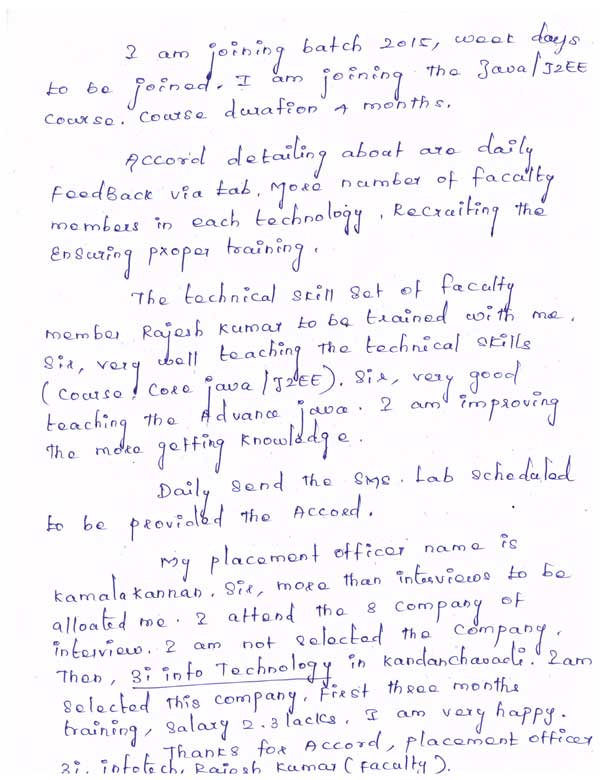 I am joining batch 2015, week days
to be joined. I am joining the Java/J2EE
course. Course duration 4 months.
Accord detailing about are daily
FeedBack via Lab. More number of faculty
members in each technology. Recruiting the
Ensuring proper training.
The technical skill set of faculty
member Rajesh Kumar to be trained with me.
Sir, very well teaching the technical skills
(Course: Core java/J2EE). Sir, very good
teaching the Advance java. I am improving
the more getting knowledge.
Daily send the SMS. Lab scheduled
to be provided the Accord.
My placement officer name is
Kamalakannan. Sir, more than interviews to be
alloated me. I attend the 8 company of
interview. I am not selected the company.
Then, 3i info Technology in Kandanchavadi. I am
selected this company. First three months
training, salary 2.3 lacks. I am very happy.
Thanks for Accord, placement officer
3i, infotech, Rajesh Kumar (faculty).